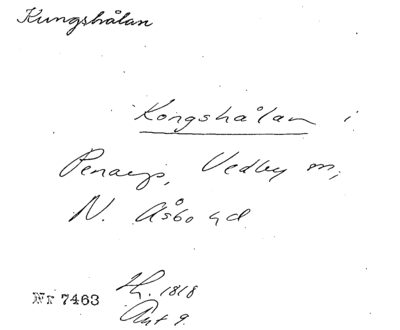 Kungshålan
Kongshålan i
Penarp, Vedby sn,
N. Åsbo hd
Nr 7463
1818
9.